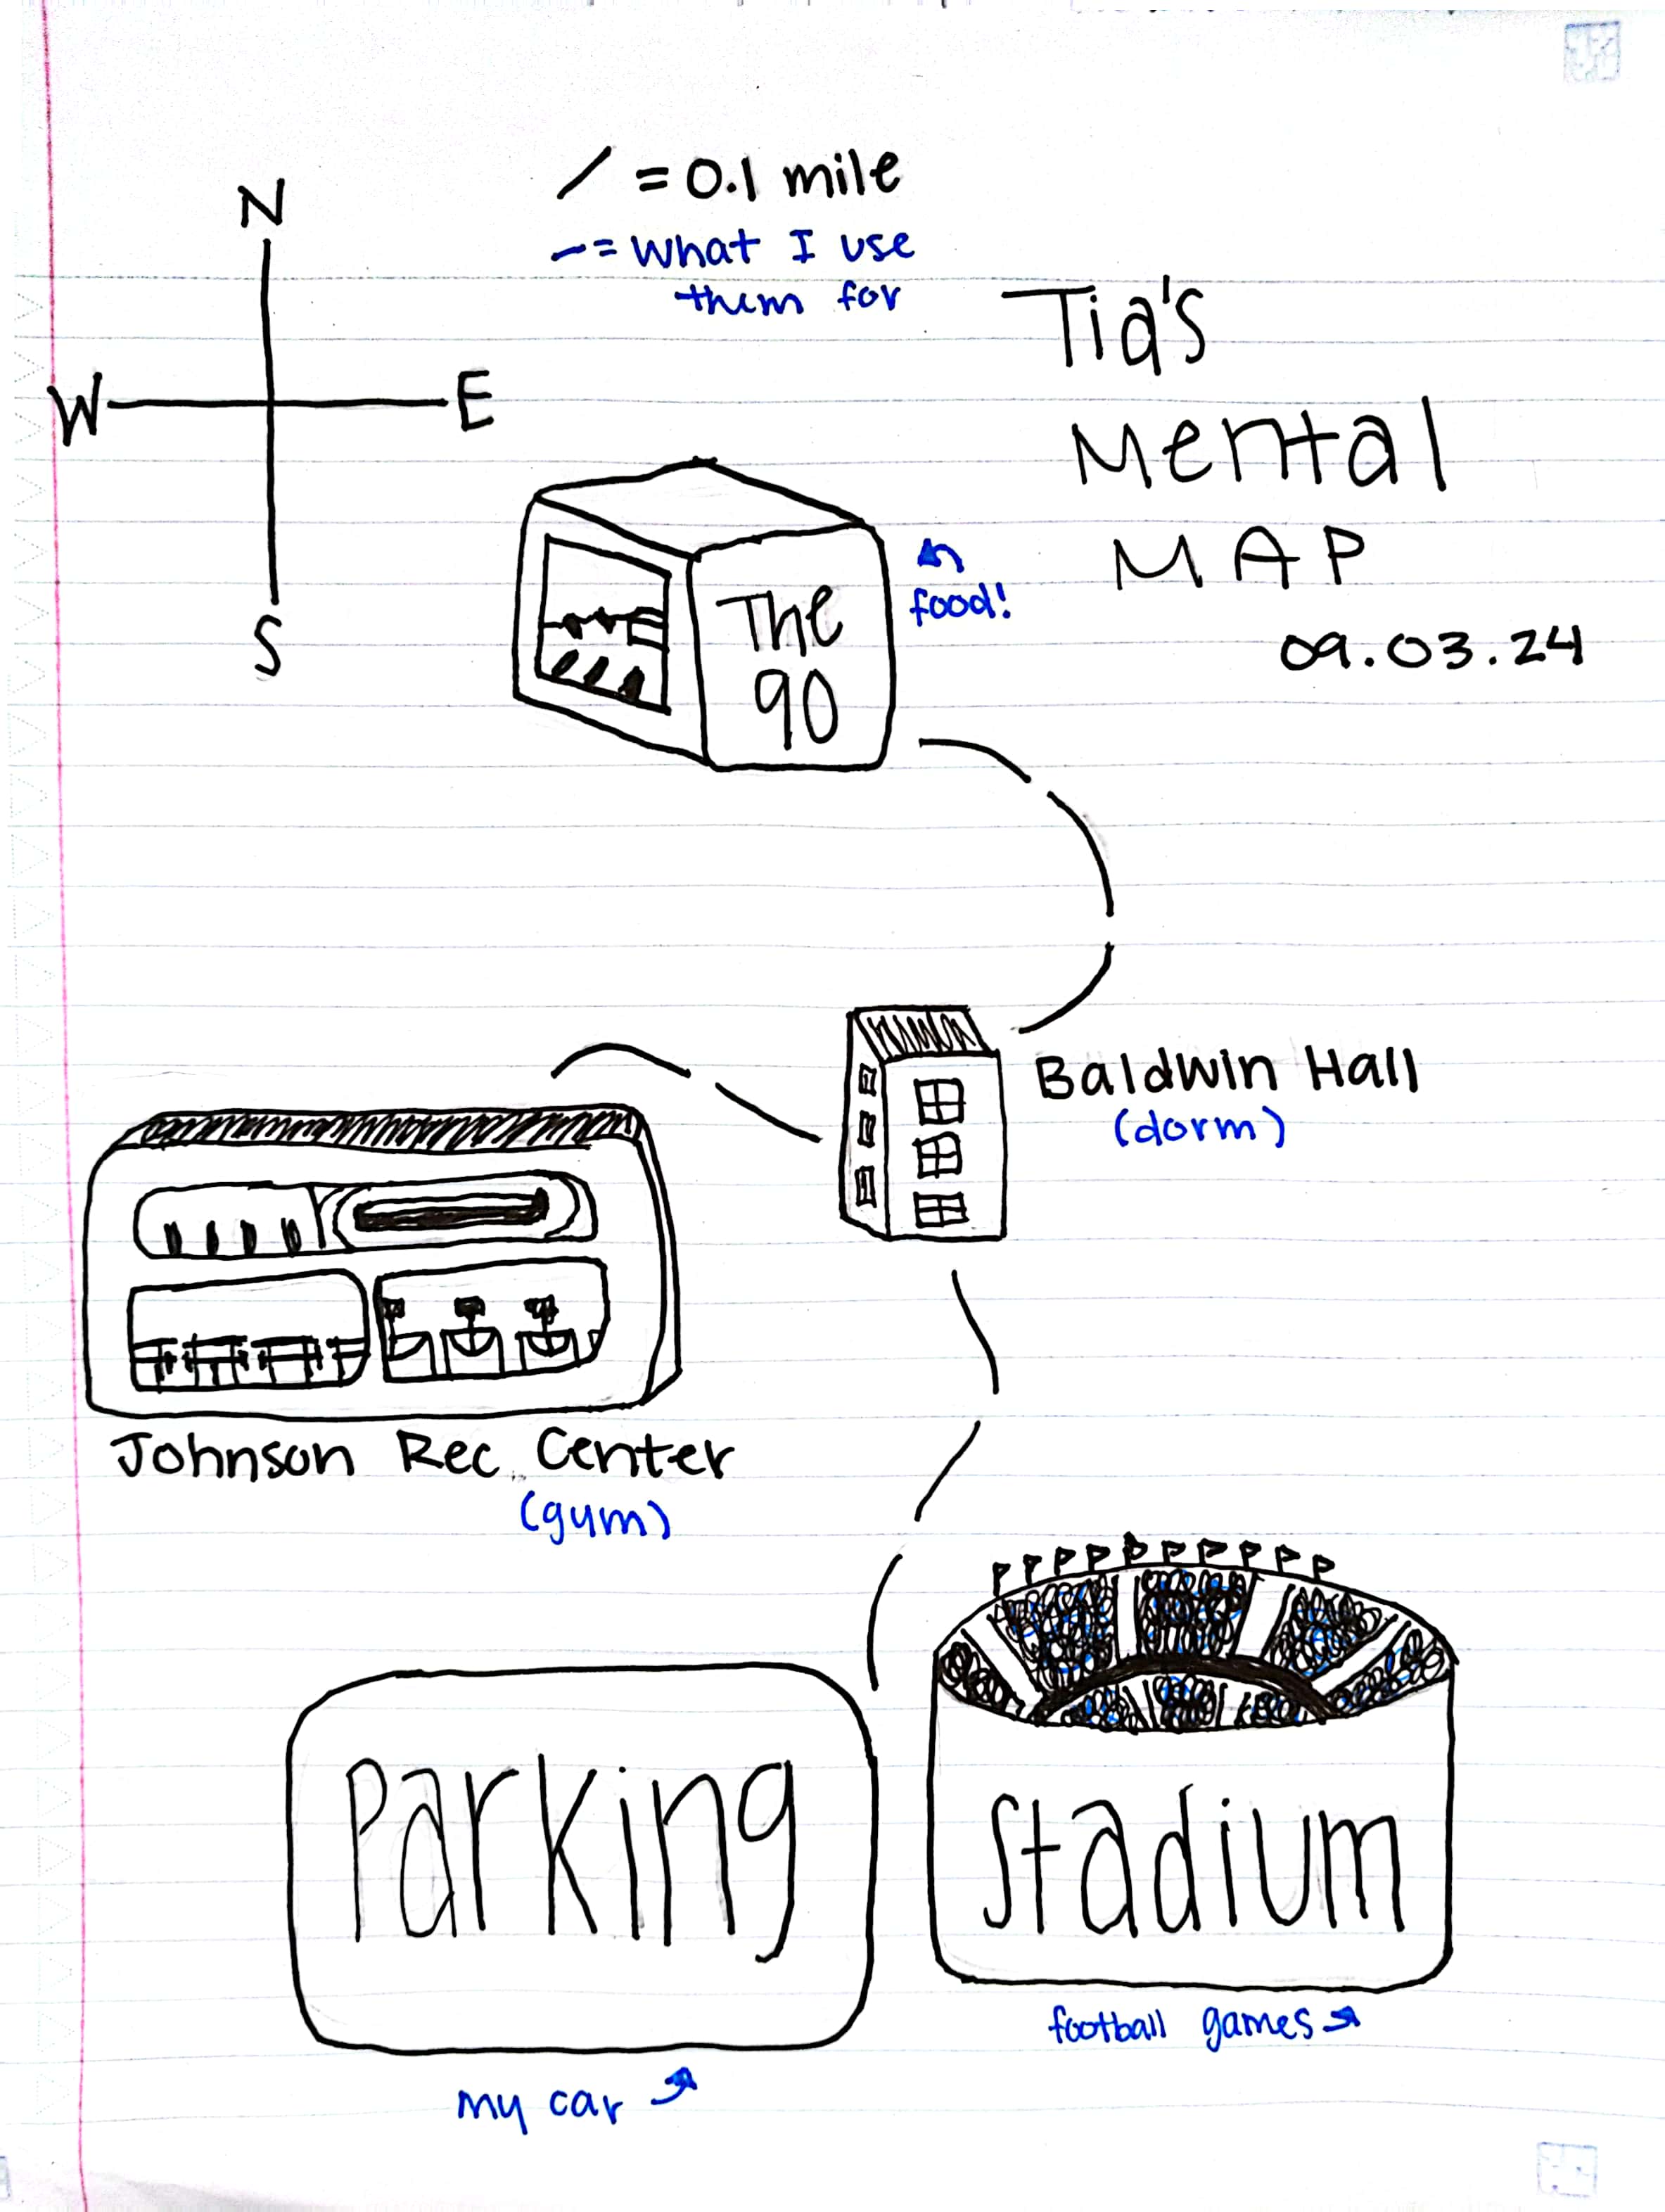 N
W
E
S
/ = 0.1 mile
- = what I use
them for
Tia's
Mental
MAP
09.03.24
The
90
food!
Baldwin Hall
(dorm)
Johnson Rec Center
(gym)
Parking
my car
Stadium
football games